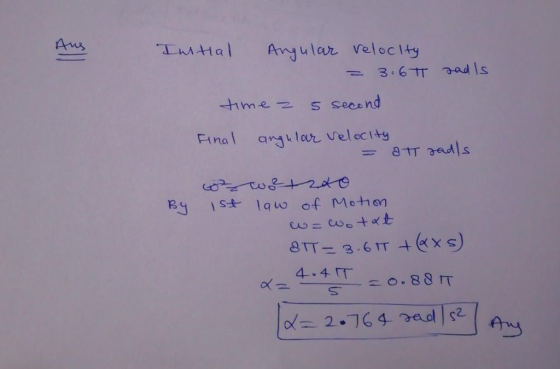 Ans Initial Angular Velocity
= 3.6π rad/s
time = 5 second
Final angular velocity
= 8π rad/s
ω² = ω₀² + 2αθ
By 1st law of Motion
ω = ω₀ + αt
8π = 3.6π + (α × 5)
α = 4.4π/5 = 0.88π
α = 2.764 rad/s² Ans